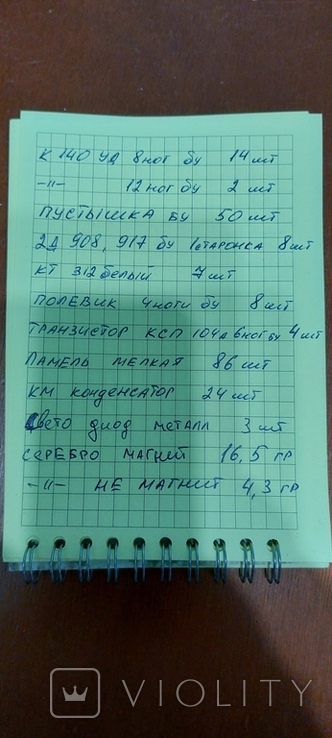 К 140 УД 8 ног бу 14 шт
-"- 12 ног бу 2 шт
ПУСТЫШКА БУ 50 шт
2Д 908, 917 бу 1 старонка 8 шт
КТ 312 белый 7 шт
ПОЛЕВИК 4 ноги бу 8 шт
ТРАНЗИСТОР КСП 104 д 6 ног бу 4 шт
ЛАМЕЛЬ МЕЛКАЯ 86 шт
КМ конденсатор 24 шт
Свето диод металл 3 шт
СЕРЕБРО МАГНИТ 16,5 гр
-"- НЕ МАГНИТ 4,3 гр
VIOLITY